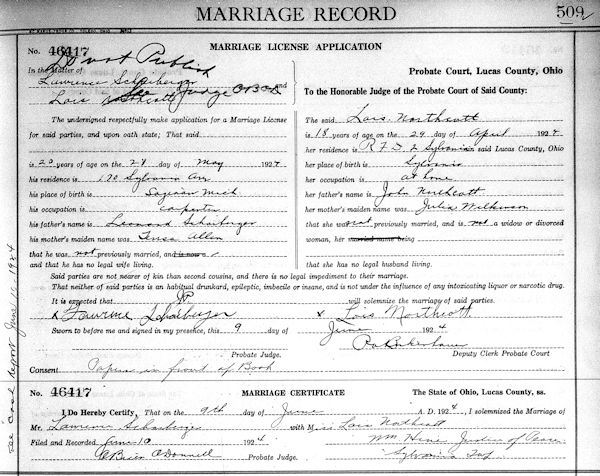 MARRIAGE RECORD
509
No. 46417
MARRIAGE LICENSE APPLICATION
Dont Publish
In the Matter of
Lawrence Scharberger
and
Lois Northcott
Judge O'B O'D
The undersigned respectfully make application for a Marriage License
for said parties, and upon oath state; That said
is 20 years of age on the 28 day of May 1924
his residence is 170 Sylvania Av
his place of birth is Saginaw Mich
his occupation is carpenter
his father's name is Leonard Scharberger
his mother's maiden name was Tensa Allen
that he was not previously married, and is now a
and that he has no legal wife living.
Probate Court, Lucas County, Ohio
To the Honorable Judge of the Probate Court of Said County:
The said Lois Northcott
is 18 years of age on the 29 day of April 1924
her residence is R F D 2 Sylvania said Lucas County, Ohio
her place of birth is Sylvania
her occupation is at home
her father's name is John Northcott
her mother's maiden name was Julia Wilkinson
that she was not previously married, and is not a widow or divorced
woman, her married name being
and that she has no legal husband living.
Said parties are not nearer of kin than second cousins, and there is no legal impediment to their marriage.
That neither of said parties is an habitual drunkard, epileptic, imbecile or insane, and is not under the influence of any intoxicating liquor or narcotic drug.
It is expected that JP will solemnize the marriage of said parties.
x Lawrence Scharberger x Lois Northcott
Sworn to before me and signed in my presence, this 9 day of June 1924
Probate Judge. Deputy Clerk Probate Court
Consent Papers in front of Book
See consent report June 10, 1924
No. 46417
MARRIAGE CERTIFICATE
The State of Ohio, Lucas County, ss.
I Do Hereby Certify, That on the 9th day of June A. D. 1924, I solemnized the Marriage of
Mr. Lawrence Scharberger with Miss Lois Northcott
Filed and Recorded June 10 1924 Wm Hine Justice of Peace
O'Brien O'Donnell Sylvania Twp
Probate Judge.